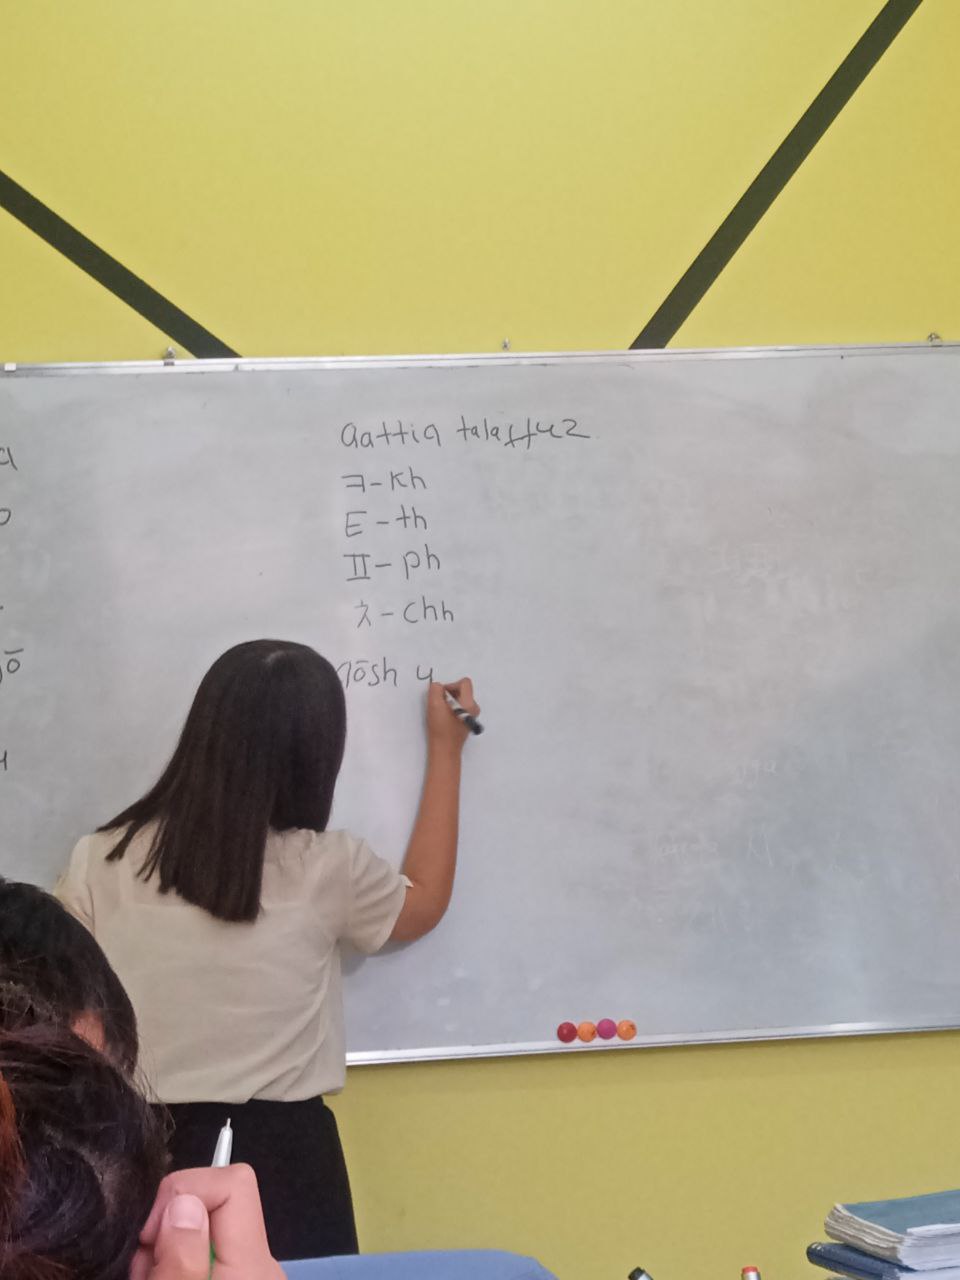 qattiq talaffuz
ㅋ-kh
ㅌ-th
ㅍ-ph
ㅊ-chh